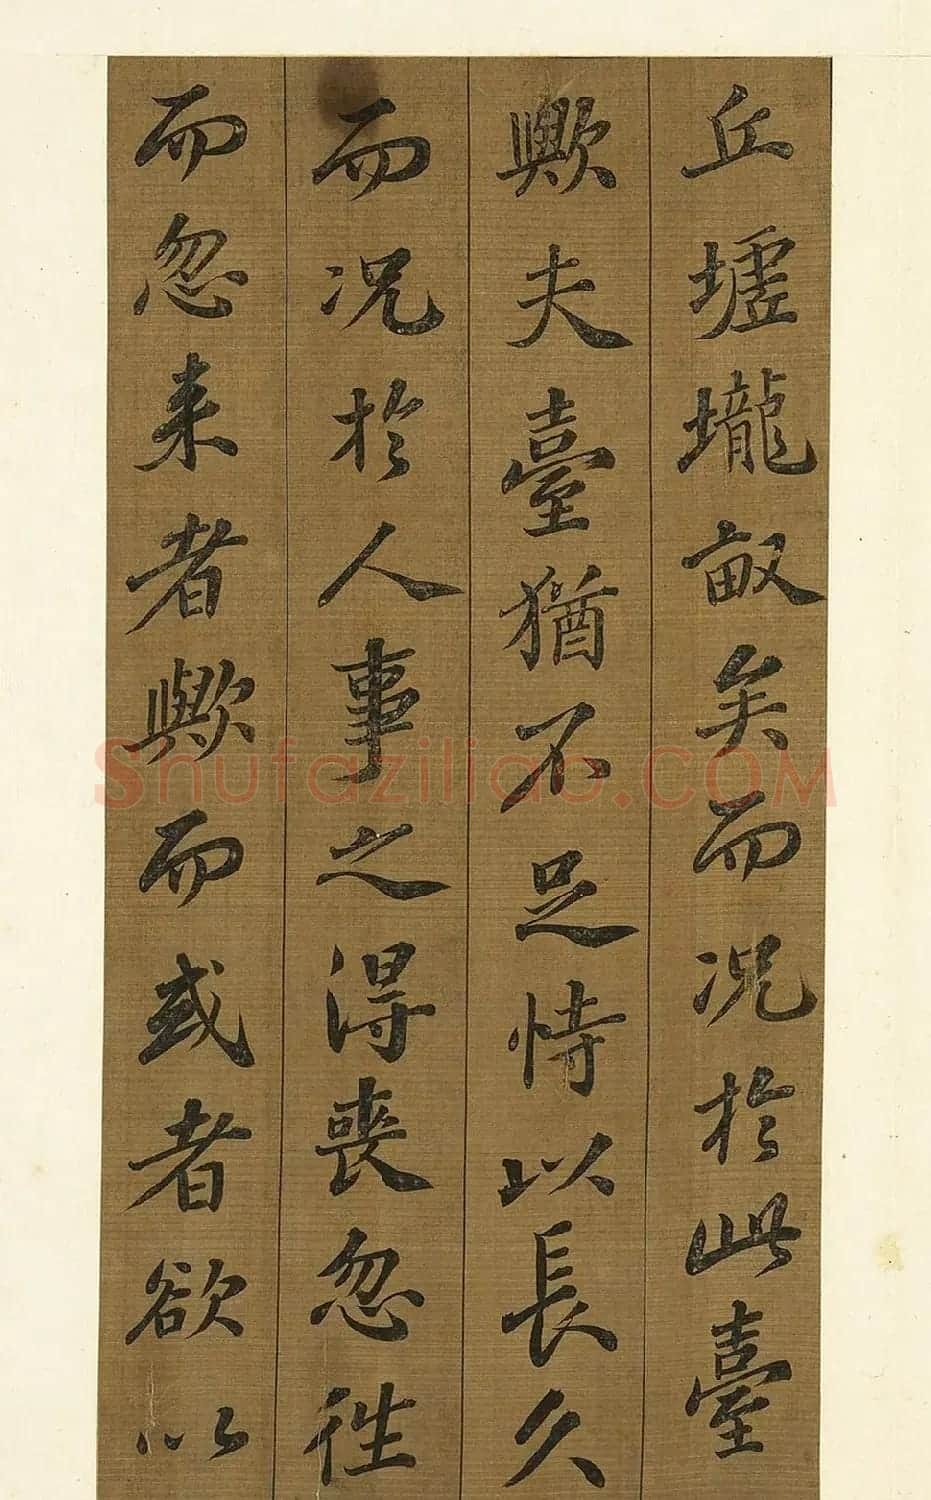 丘墟壠畝矣而况於此臺
歟夫臺猶不足恃以長久
而况於人事之得喪忽徃
而忽来者歟而或者欲以
Shufaziliao.COM